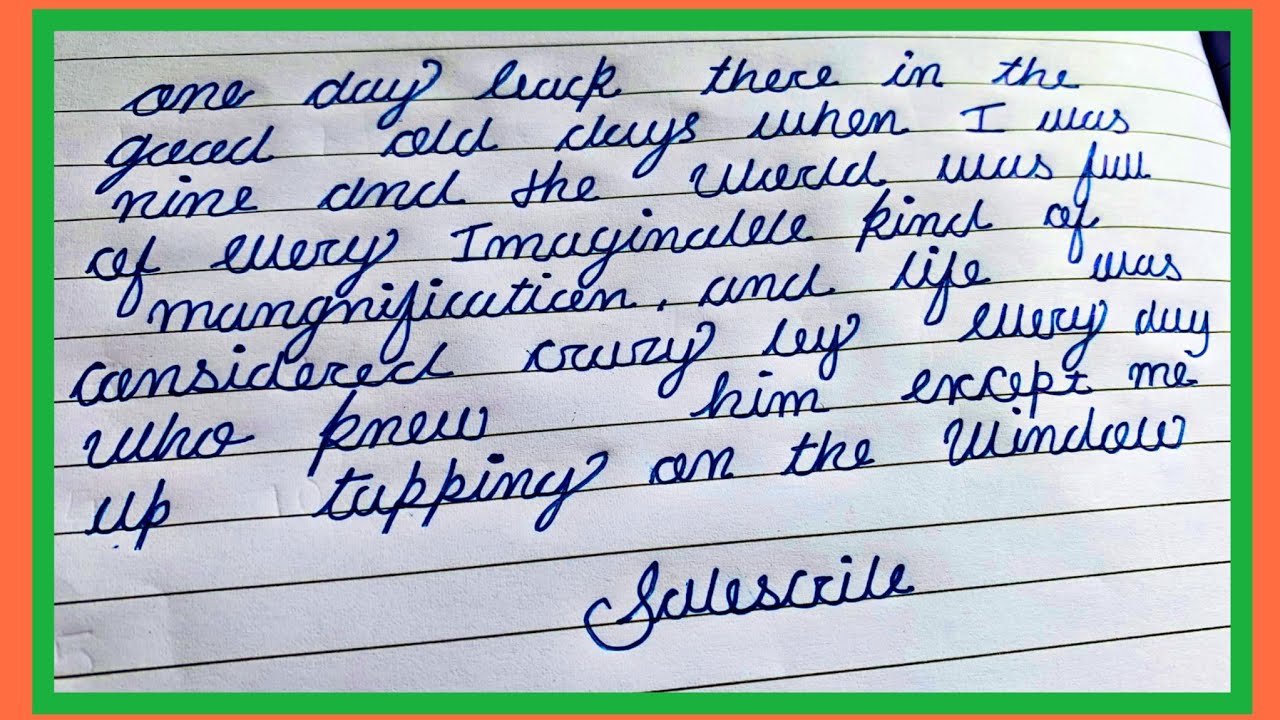 one day back there in the
good old days when I was
nine and the world was full
of every Imaginable kind of
mangnification, and life was
considered crazy by every day
who knew him except me
up tapping on the window
Subscribe